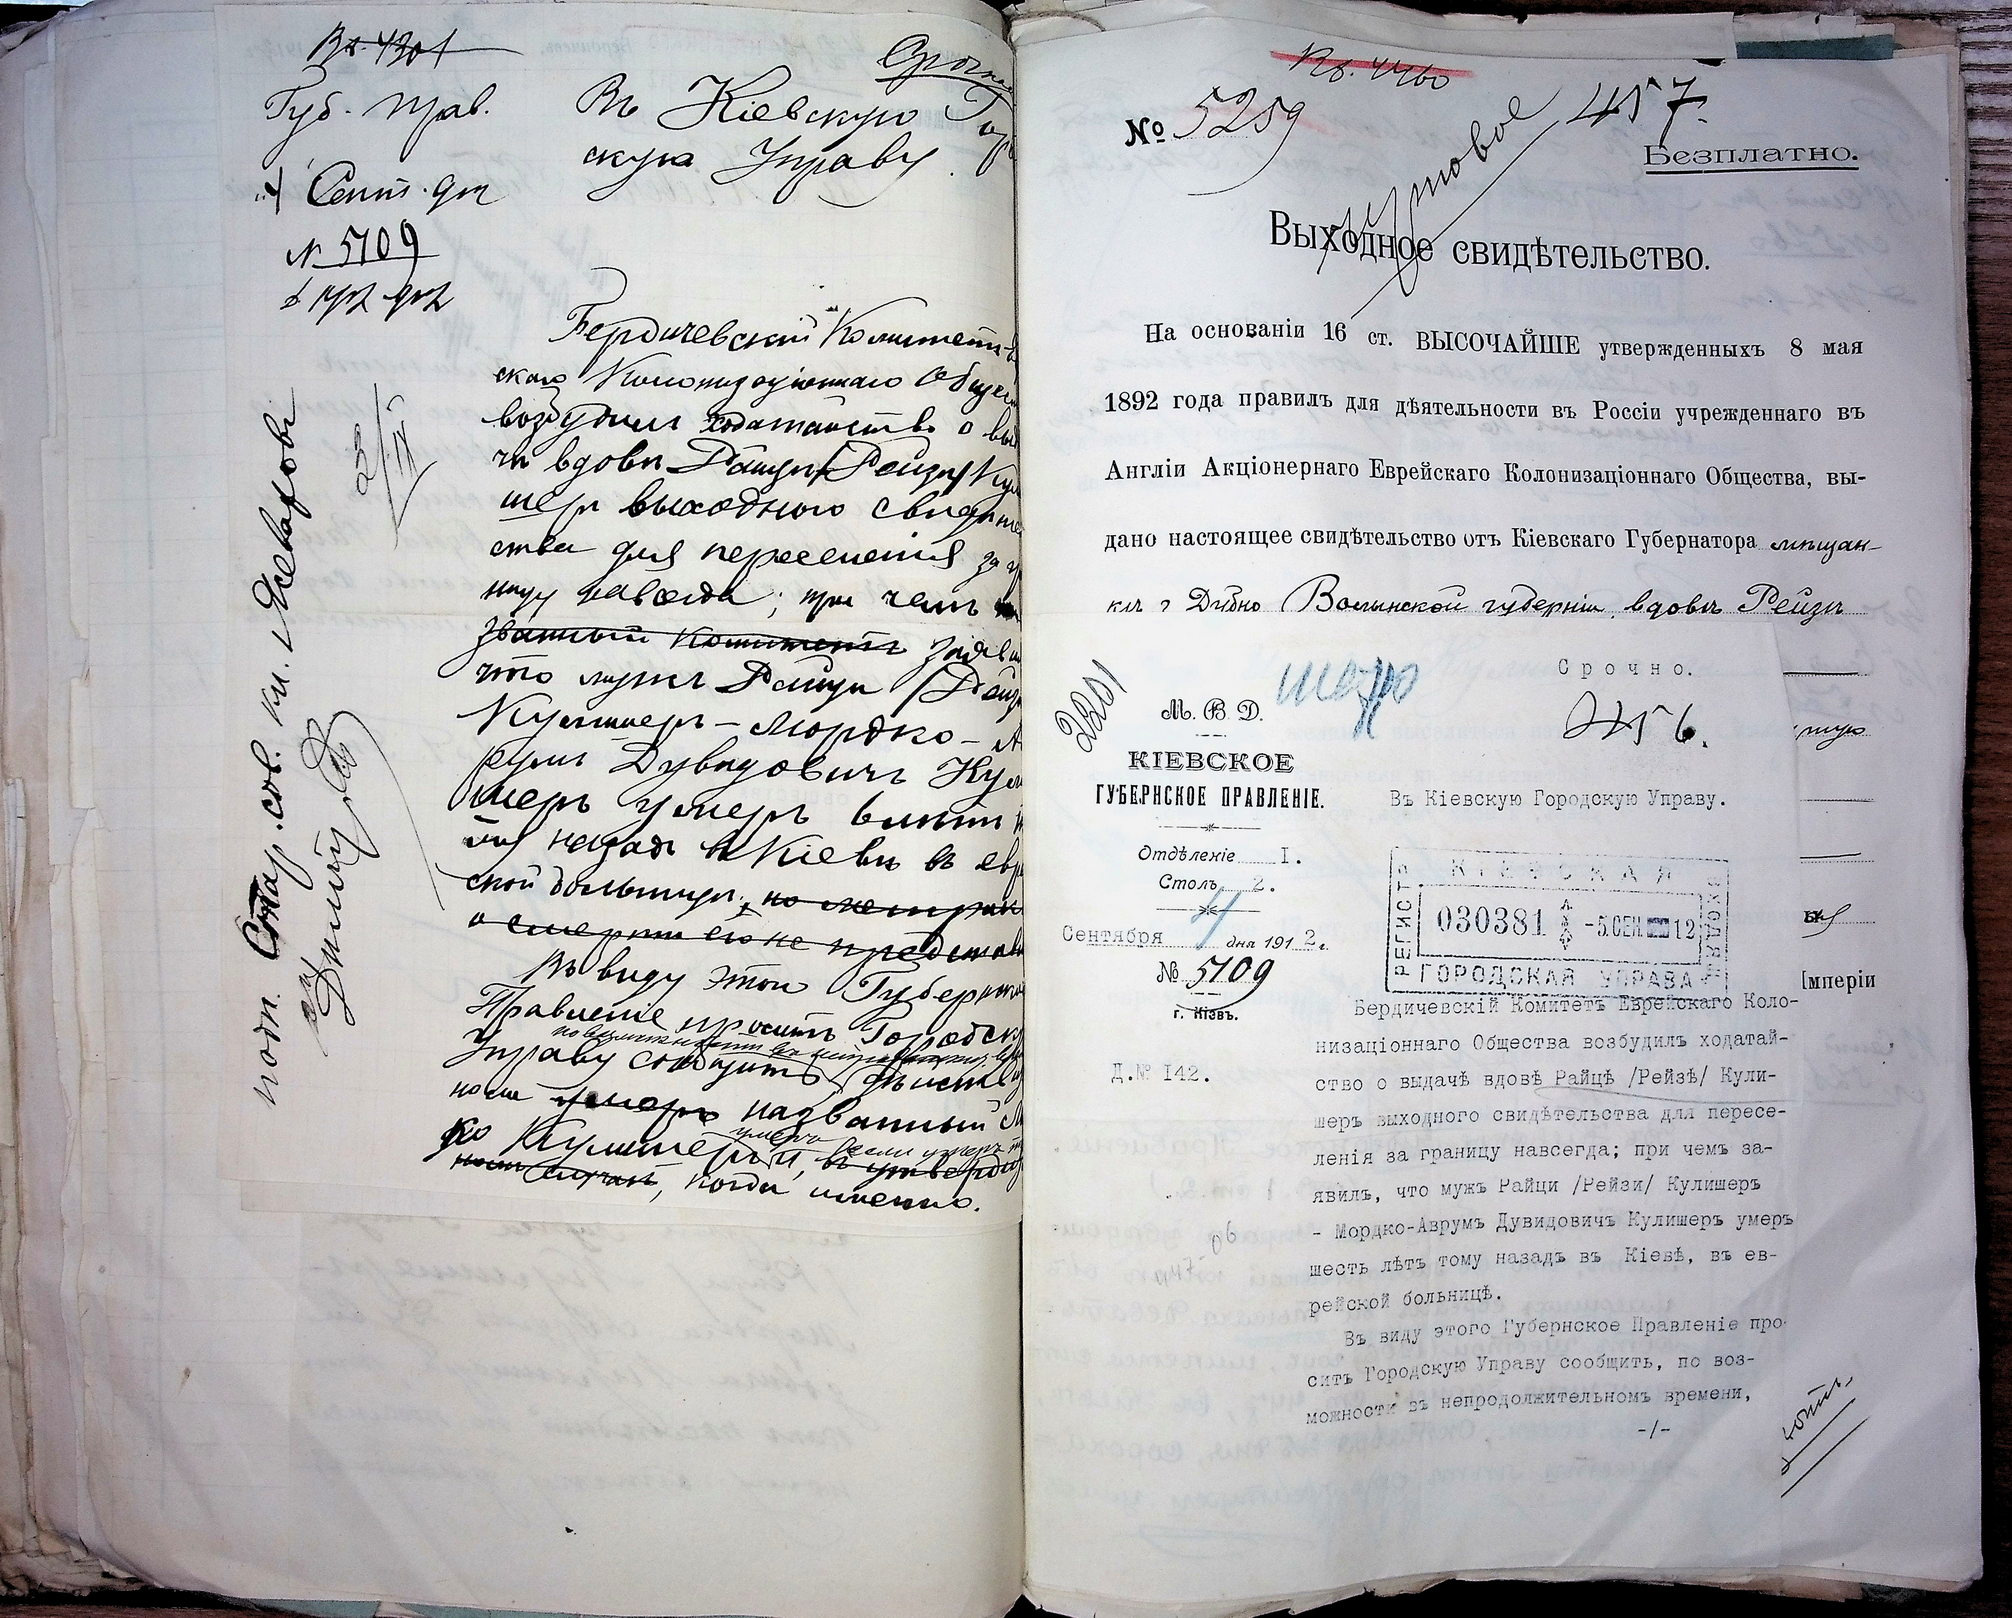 Вх. 4301
Губ. Прав.
4 Сент. дня
№ 5109
Срочно
Въ Кіевскую Город
скую Управу.
Бердичевскій Комитетъ
скаго Колонизаціоннаго Общест
возбудилъ ходатайство о вы
чѣ вдовѣ Райцѣ (Рейзѣ) Кули
шеръ выходного свидѣтель
ства для переселенія за гра
ницу навсегда; при чемъ
званный Комитетъ заявилъ
что мужъ Райцы (Рейзи
Кулишеръ – Мордко-Ав
румъ Дувидовичъ Кули
шеръ умеръ 6 лѣтъ
тому назадъ въ Кіевѣ въ евр
ской больницѣ,
о смерти его не представ
Въ виду этого Губернское
Правленіе проситъ Городск
Управу сообщить, дѣйстви
но ли умеръ названный
Кулишеръ и,
когда именно.
№ 5259
457.
Безплатно.
Выходное свидѣтельство.
На основаніи 16 ст. ВЫСОЧАЙШЕ утвержденныхъ 8 мая
1892 года правилъ для дѣятельности въ Россіи учрежденнаго въ
Англіи Акціонернаго Еврейскаго Колонизаціоннаго Общества, вы-
дано настоящее свидѣтельство отъ Кіевскаго Губернатора мѣщан-
кѣ г Дубно Волынской губерніи, вдовѣ Рейзѣ
Имперіи
Срочно.
456.
М. В. Д.
КІЕВСКОЕ
ГУБЕРНСКОЕ ПРАВЛЕНІЕ.
Отдѣленіе I.
Столъ 2.
Сентября 4 дня 1912 г.
№ 5109
г. Кіевъ.
Д.№ 142.
Въ Кіевскую Городскую Управу.
КІЕВСКАЯ
РЕГИСТР
030381 -5 СЕН 12
ГОРОДСКАЯ УПРАВА
Бердичевскій Комитетъ Еврейскаго Коло-
низаціоннаго Общества возбудилъ ходатай-
ство о выдачѣ вдовѣ Райцѣ /Рейзѣ/ Кули-
шеръ выходного свидѣтельства для пересе-
ленія за границу навсегда; при чемъ за-
явилъ, что мужъ Райци /Рейзи/ Кулишеръ
- Мордко-Аврумъ Дувидовичъ Кулишеръ умеръ
шесть лѣтъ тому назадъ въ Кіевѣ, въ ев-
рейской больницѣ.
Въ виду этого Губернское Правленіе про-
ситъ Городскую Управу сообщить, по воз-
можности въ непродолжительномъ времени,
-/-